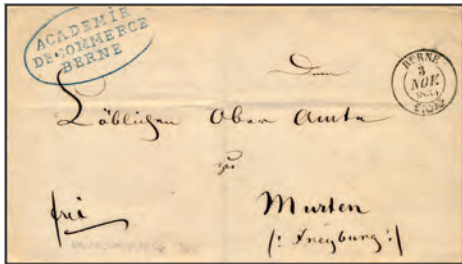 ACADEMIE
DE COMMERCE
BERNE
BERNE
3
NOV.
Dem
Löblichen Ober Amte
zu
frei
Murten
(: Freyburg :)